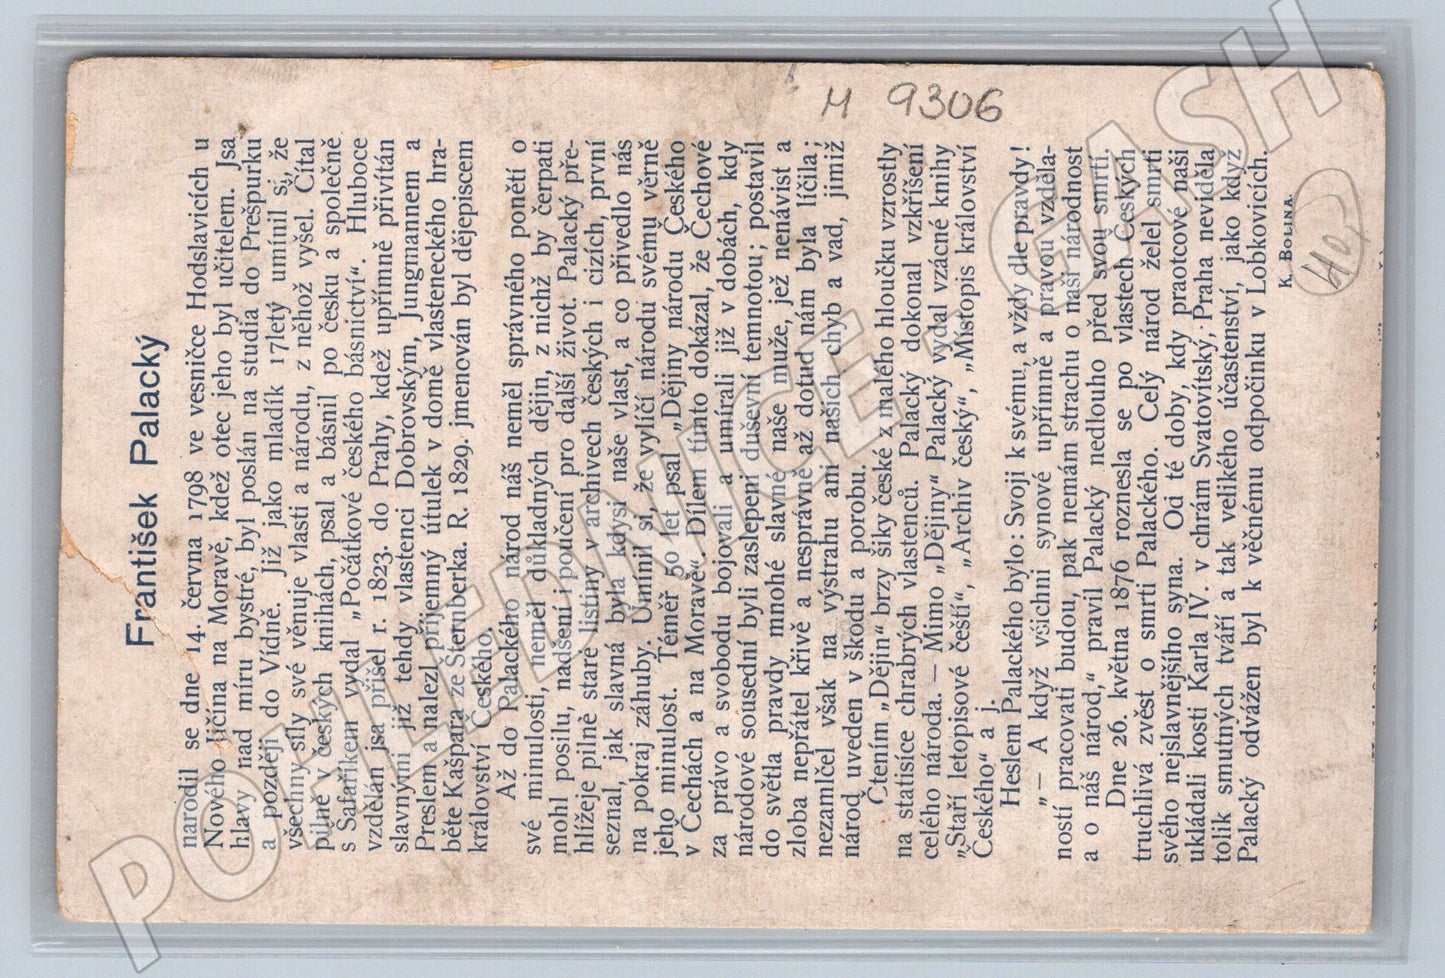 František Palacký
narodil se dne 14. června 1798 ve vesničce Hodslavicích u
Nového Jičína na Moravě, kdež otec jeho byl učitelem. Jsa
hlavy nad míru bystré, byl poslán na studia do Prešpurku
a později do Vídně. Již jako mladík 17letý umínil si, že
všechny síly své věnuje vlasti a národu, z něhož vyšel. Čítal
pilně v českých knihách, psal a básnil po česku a společně
s Šafaříkem vydal „Počátkové českého básnictví“. Hluboce
vzdělán jsa přišel r. 1823. do Prahy, kdež upřímně přivítán
slavnými již tehdy vlastenci Dobrovským, Jungmannem a
Preslem a nalezl příjemný útulek v domě vlasteneckého hra-
běte Kašpara ze Šternberka. R. 1829. jmenován byl dějepiscem
království Českého.
Až do Palackého národ náš neměl správného ponětí o
své minulosti, neměl důkladných dějin, z nichž by čerpati
mohl posilu, nadšení i poučení pro další život. Palacký pře-
hlížeje pilně staré listiny archivech českých i cizích, první
seznal, jak slavná byla kdysi naše vlast, a co přivedlo nás
na pokraj záhuby. Umínil si, že vylíčí národu svému věrně
jeho minulost. Téměř 50 let psal „Dějiny národu Českého
v Čechách a na Moravě“. Dílem tímto dokázal, že Čechové
za právo a svobodu bojovali a umírali již v dobách, kdy
národové sousední byli zaslepeni duševní temnotou; postavil
do světla pravdy mnohé slavné naše muže, jež nenávist a
zloba nepřátel křivě a nesprávně až dotud nám byla líčila;
nezamlčel však na výstrahu ani našich chyb a vad, jimiž
národ uveden v škodu a porobu.
Čtením „Dějin“ brzy šiky české z malého hloučku vzrostly
na statisíce chrabrých vlastenců. Palacký dokonal vzkříšení
celého národa. — Mimo „Dějiny“ Palacký vydal vzácné knihy
„Staří letopisové čeští“, „Archiv český“, „Místopis království
Českého“ a j.
Heslem Palackého bylo: Svoji k svému, a vždy dle pravdy!
„— A když všichni synové upřímně a pravou vzděla-
ností pracovati budou, pak nemám strachu o naši národnost
a o náš národ,“ pravil Palacký nedlouho před svou smrtí.
Dne 26. května 1876 roznesla se po vlastech Českých
truchlivá zvěst o smrti Palackého. Celý národ želel smrti
svého nejslavnějšího syna. Od té doby, kdy praotcové naši
ukládali kosti Karla IV. v chrám Svatovítský, Praha neviděla
tolik smutných tváří a tak velikého účastenství, jako když
Palacký odvážen byl k věčnému odpočinku v Lobkovicích.
K. BOLINA.
M 9306
40,-
POHLEDNICE - GASH